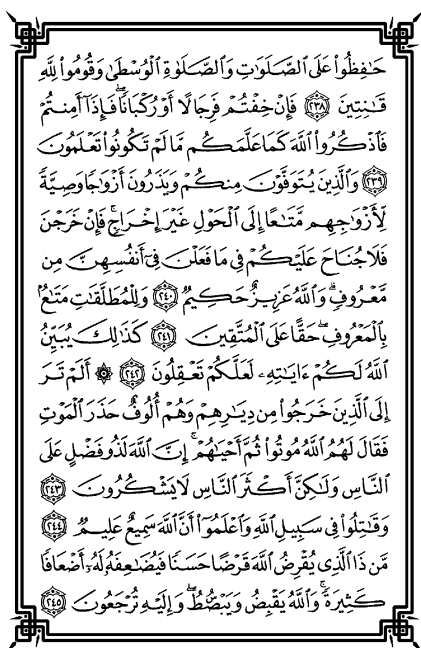 حَٰفِظُوا۟ عَلَى ٱلصَّلَوَٰتِ وَٱلصَّلَوٰةِ ٱلْوُسْطَىٰ وَقُومُوا۟ لِلَّهِ
قَٰنِتِينَ ٢٣٨ فَإِنْ خِفْتُمْ فَرِجَالًا أَوْ رُكْبَانًا ۖ فَإِذَآ أَمِنتُمْ
فَٱذْكُرُوا۟ ٱللَّهَ كَمَا عَلَّمَكُم مَّا لَمْ تَكُونُوا۟ تَعْلَمُونَ
٢٣٩ وَٱلَّذِينَ يُتَوَفَّوْنَ مِنكُمْ وَيَذَرُونَ أَزْوَٰجًا وَصِيَّةً
لِّأَزْوَٰجِهِم مَّتَٰعًا إِلَى ٱلْحَوْلِ غَيْرَ إِخْرَاجٍ ۚ فَإِنْ خَرَجْنَ
فَلَا جُنَاحَ عَلَيْكُمْ فِى مَا فَعَلْنَ فِىٓ أَنفُسِهِنَّ مِن
مَّعْرُوفٍ ۗ وَٱللَّهُ عَزِيزٌ حَكِيمٌ ٢٤٠ وَلِلْمُطَلَّقَٰتِ مَتَٰعٌۢ
بِٱلْمَعْرُوفِ ۖ حَقًّا عَلَى ٱلْمُتَّقِينَ ٢٤١ كَذَٰلِكَ يُبَيِّنُ
ٱللَّهُ لَكُمْ ءَايَٰتِهِۦ لَعَلَّكُمْ تَعْقِلُونَ ٢٤٢ ۞ أَلَمْ تَرَ
إِلَى ٱلَّذِينَ خَرَجُوا۟ مِن دِيَٰرِهِمْ وَهُمْ أُلُوفٌ حَذَرَ ٱلْمَوْتِ
فَقَالَ لَهُمُ ٱللَّهُ مُوتُوا۟ ثُمَّ أَحْيَٰهُمْ ۚ إِنَّ ٱللَّهَ لَذُو فَضْلٍ عَلَى
ٱلنَّاسِ وَلَٰكِنَّ أَكْثَرَ ٱلنَّاسِ لَا يَشْكُرُونَ ٢٤٣
وَقَٰتِلُوا۟ فِى سَبِيلِ ٱللَّهِ وَٱعْلَمُوٓا۟ أَنَّ ٱللَّهَ سَمِيعٌ عَلِيمٌ ٢٤٤
مَّن ذَا ٱلَّذِى يُقْرِضُ ٱللَّهَ قَرْضًا حَسَنًا فَيُضَٰعِفَهُۥ لَهُۥٓ أَضْعَافًا
كَثِيرَةً ۚ وَٱللَّهُ يَقْبِضُ وَيَبْصُۜطُ وَإِلَيْهِ تُرْجَعُونَ ٢٤٥